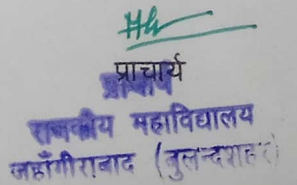 प्राचार्य
प्राचार्य
राजकीय महाविद्यालय
जहाँगीराबाद (बुलन्दशहर)